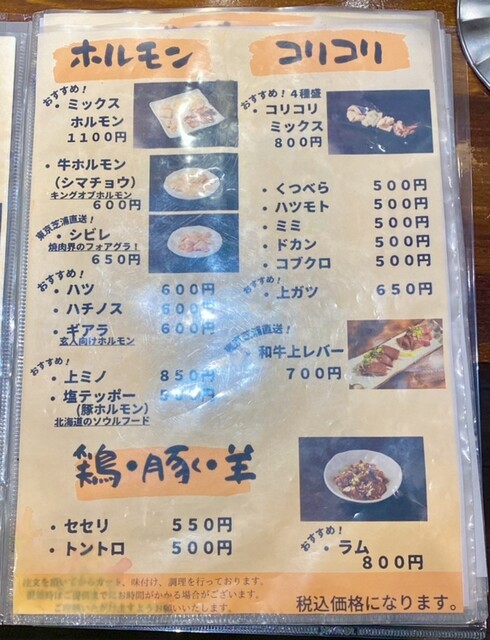 ホルモン
おすすめ!
・ミックス
ホルモン
1100円
・牛ホルモン
(シマチョウ)
キングオブホルモン
600円
東京芝浦直送!
・シビレ
焼肉界のフォアグラ!
650円
おすすめ!
・ハツ 600円
・ハチノス 600円
・ギアラ 600円
玄人向けホルモン
おすすめ!
・上ミノ 850円
・塩テッポー 500円
(豚ホルモン)
北海道のソウルフード
コリコリ
おすすめ!4種盛
・コリコリ
ミックス
800円
・くつべら 500円
・ハツモト 500円
・ミミ 500円
・ドカン 500円
・コブクロ 500円
おすすめ!
・上ガツ 650円
東京芝浦直送!
和牛上レバー
700円
鶏・豚・羊
・セセリ 550円
・トントロ 500円
おすすめ!
・ラム
800円
味付け、調理を行っております。
お時間がかかる場合がございます。
お願いいたします。
税込価格になります。